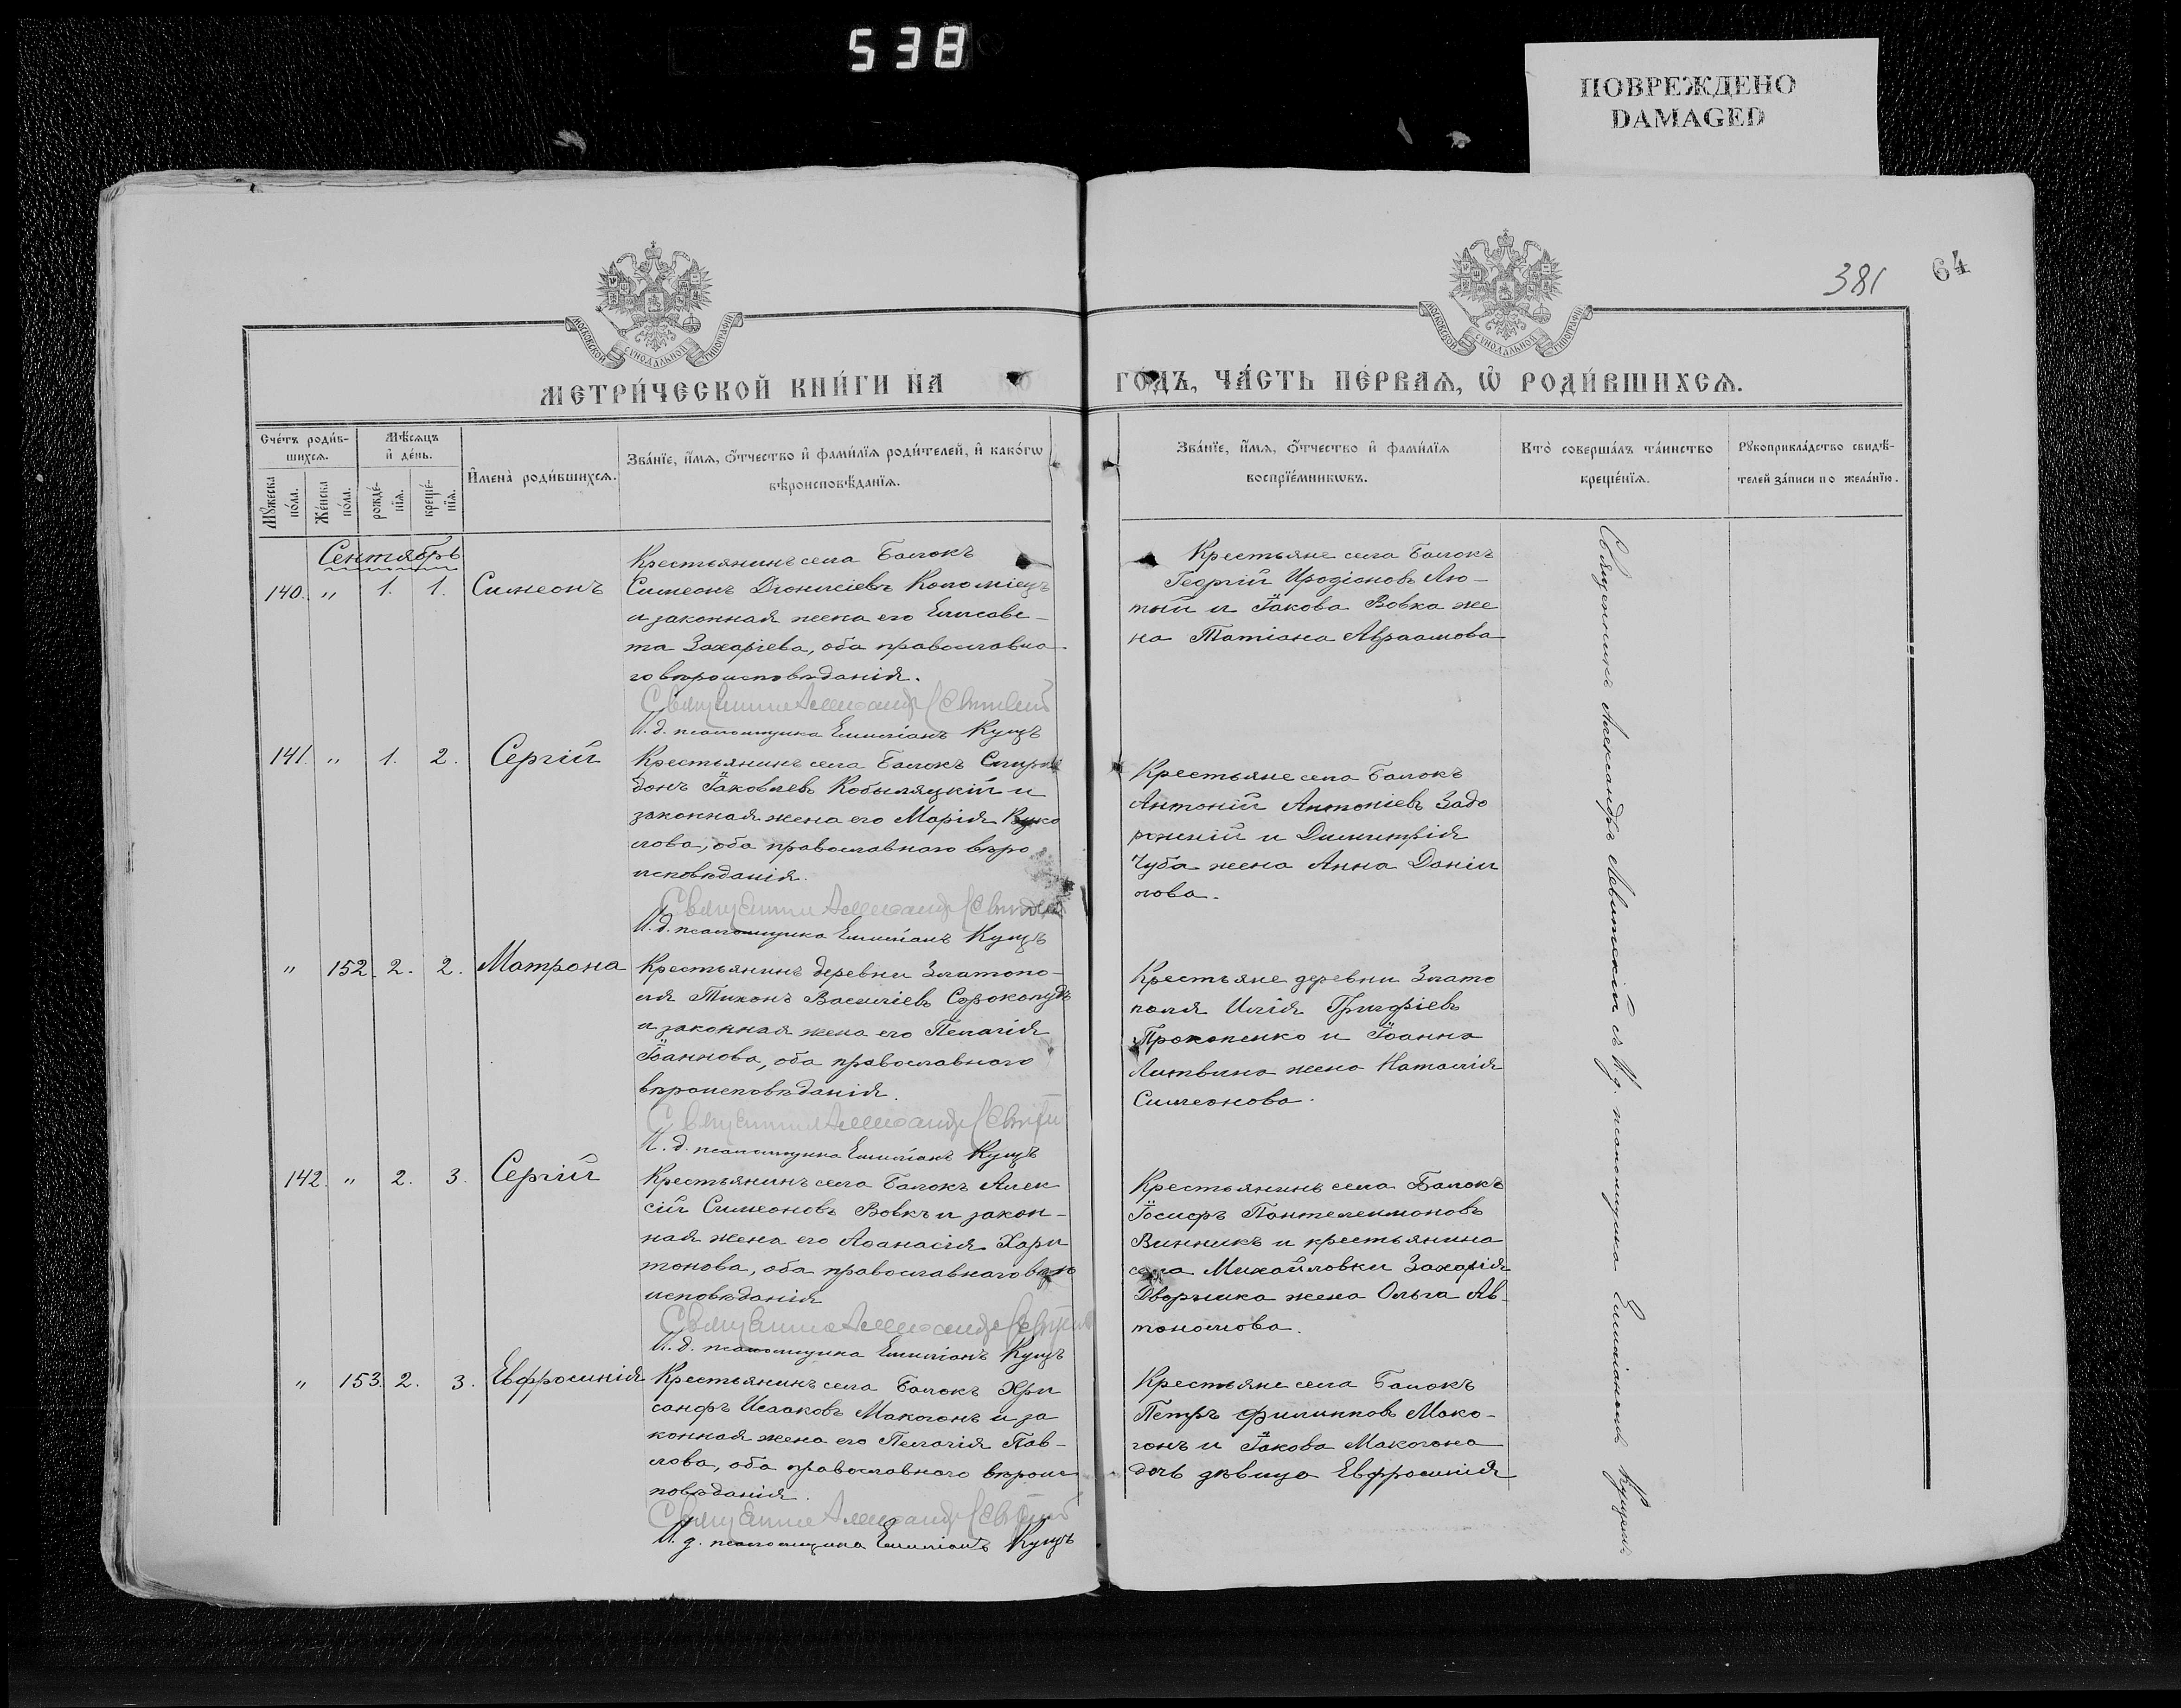 538
ПОВРЕЖДЕНО
DAMAGED
381
64
МОСКОВСКОЙ СѴНОДАЛЬНОЙ ТИПОГРАФІИ
МОСКОВСКОЙ СѴНОДАЛЬНОЙ ТИПОГРАФІИ
МЕТРИ́ЧЕСКОЙ КНИ́ГИ НА ГО́ДЪ, ЧА́СТЬ ПЕ́РВАѦ, Ѡ РОДИ́ВШИХСѦ.
Сче́тъ роди́в-
шихсѧ.
Мѣ́сѧцъ
и҆ де́нь.
Мꙋ́жеска по́ла.
Же́нска по́ла.
рожде́-нїѧ.
креще́-нїѧ.
И҆мена̀ роди́вшихсѧ.
Зва́нїе, и҆́мѧ, ѻ҆́тчество и҆ фами́лїѧ роди́телей, и҆ како́гѡ
вѣроисповѣ́данїѧ.
Зва́нїе, и҆́мѧ, ѻ҆́тчество и҆ фами́лїѧ
воспрїе́мникѡвъ.
Кто̀ соверша́лъ та́инство
креще́нїѧ.
Рꙋкоприкла́дство свидѣ́-
телей за́писи по жела́нїю.
Сентябрь
140. " 1. 1. Симеонъ
Крестьянинъ села Балокъ
Симеонъ Діонисіевъ Коломіецъ
и законная жена его Елисаве-
та Захаріева, оба православна-
го вѣроисповѣданія.
Священникъ Александръ Левитскій
И. д. псаломщика Емиліанъ Кущъ
Крестьяне села Балокъ
Георгій Иродіоновъ Лю-
тый и Іакова Вовка же
на Татіана Авраамова
141. " 1. 2. Сергій
Крестьянинъ села Балокъ Спири
донъ Іаковлевъ Кобыляцкій и
законная жена его Марія Вуко
лова, оба православнаго вѣро
исповѣданія.
Священникъ Александръ Левитскій
И. д. псаломщика Емиліанъ Кущъ
Крестьяне села Балокъ
Антоній Антоніевъ Задо
рожній и Димитрія
Чуба жена Анна Даніи
лова.
" 152. 2. 2. Матрона
Крестьянинъ деревни Златопо-
ля Тихонъ Василіевъ Сорокопудъ
и законная жена его Пелагія
Іоаннова, оба православнаго
вѣроисповѣданія.
Священникъ Александръ Левитскій
И. д. псаломщика Емиліанъ Кущъ
Крестьяне деревни Злато
поля Илія Григоріевъ
Прокопенко и Іоанна
Литвина жена Наталія
Симеонова.
142. " 2. 3. Сергій
Крестьянинъ села Балокъ Алек
сій Симеоновъ Вовкъ и закон-
ная жена его Аѳанасія Хари
тонова, оба православнаго вѣро
исповѣданія
Священникъ Александръ Левитскій
И. д. псаломщика Емиліанъ Кущъ
Крестьянинъ села Балокъ
Іосифъ Пантелеимоновъ
Винникъ и крестьянина
села Михайловки Захарія
Дворника жена Ольга Ав-
тономова.
" 153. 2. 3. Евфросинія
Крестьянинъ села Балокъ Хри
санфъ Исааковъ Макогонъ и за
конная жена его Пелагія Пав-
лова, оба православнаго вѣроис
повѣданія.
Священникъ Александръ Левитскій
И. д. псаломщика Емиліанъ Кущъ
Крестьяне села Балокъ
Петръ Филипповъ Мако-
гонъ и Іакова Макогона
дочь дѣвица Евфросинія
Священникъ Александръ Левитскій съ И. д. псаломщика Емиліаномъ Кущемъ